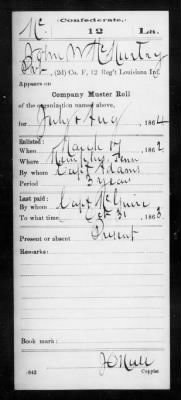 Confederate.
Mc 12 La.
John W McMurtry
Pvt, (2d) Co. F, 12 Reg't Louisiana Inf.
Appears on
Company Muster Roll
of the organization named above,
for July & Aug, 1864
Enlisted:
When March 17, 1862
Where Memphis, Tenn
By whom Capt Adams
Period 3 years
Last paid:
By whom Capt McGuire
To what time Oct 31, 1863
Present or absent Present
Remarks:
Book mark:
(642)
Copyist.